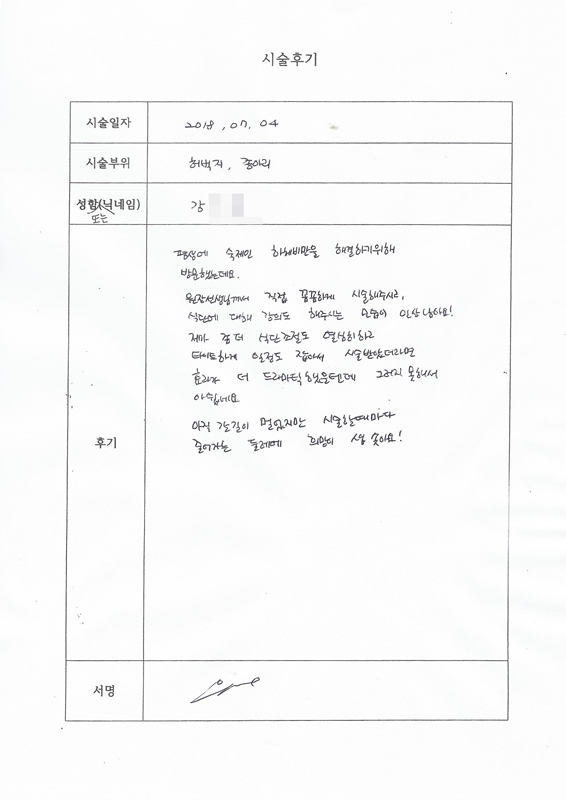 시술후기
시술일자 2018, 07, 04
시술부위 허벅지, 종아리
성함(닉네임) 강
또는
후기
평생에 숙제인 하체비만을 해결하기위해
방문했는데요.
원장선생님께서 직접 꼼꼼하게 시술해주시고,
식단에 대해 강의도 해주시는 모습이 인상 남아요!
제가 좀 더 식단조절도 열심히하고
타이트하게 일정도 잡아서 시술받았더라면
효과가 더 드라마틱했을텐데 그러지 못해서
아쉽네요
아직 갈길이 멀었지만 시술할때마다
줄어가는 둘레에 희망이 샘 솟아요!
서명